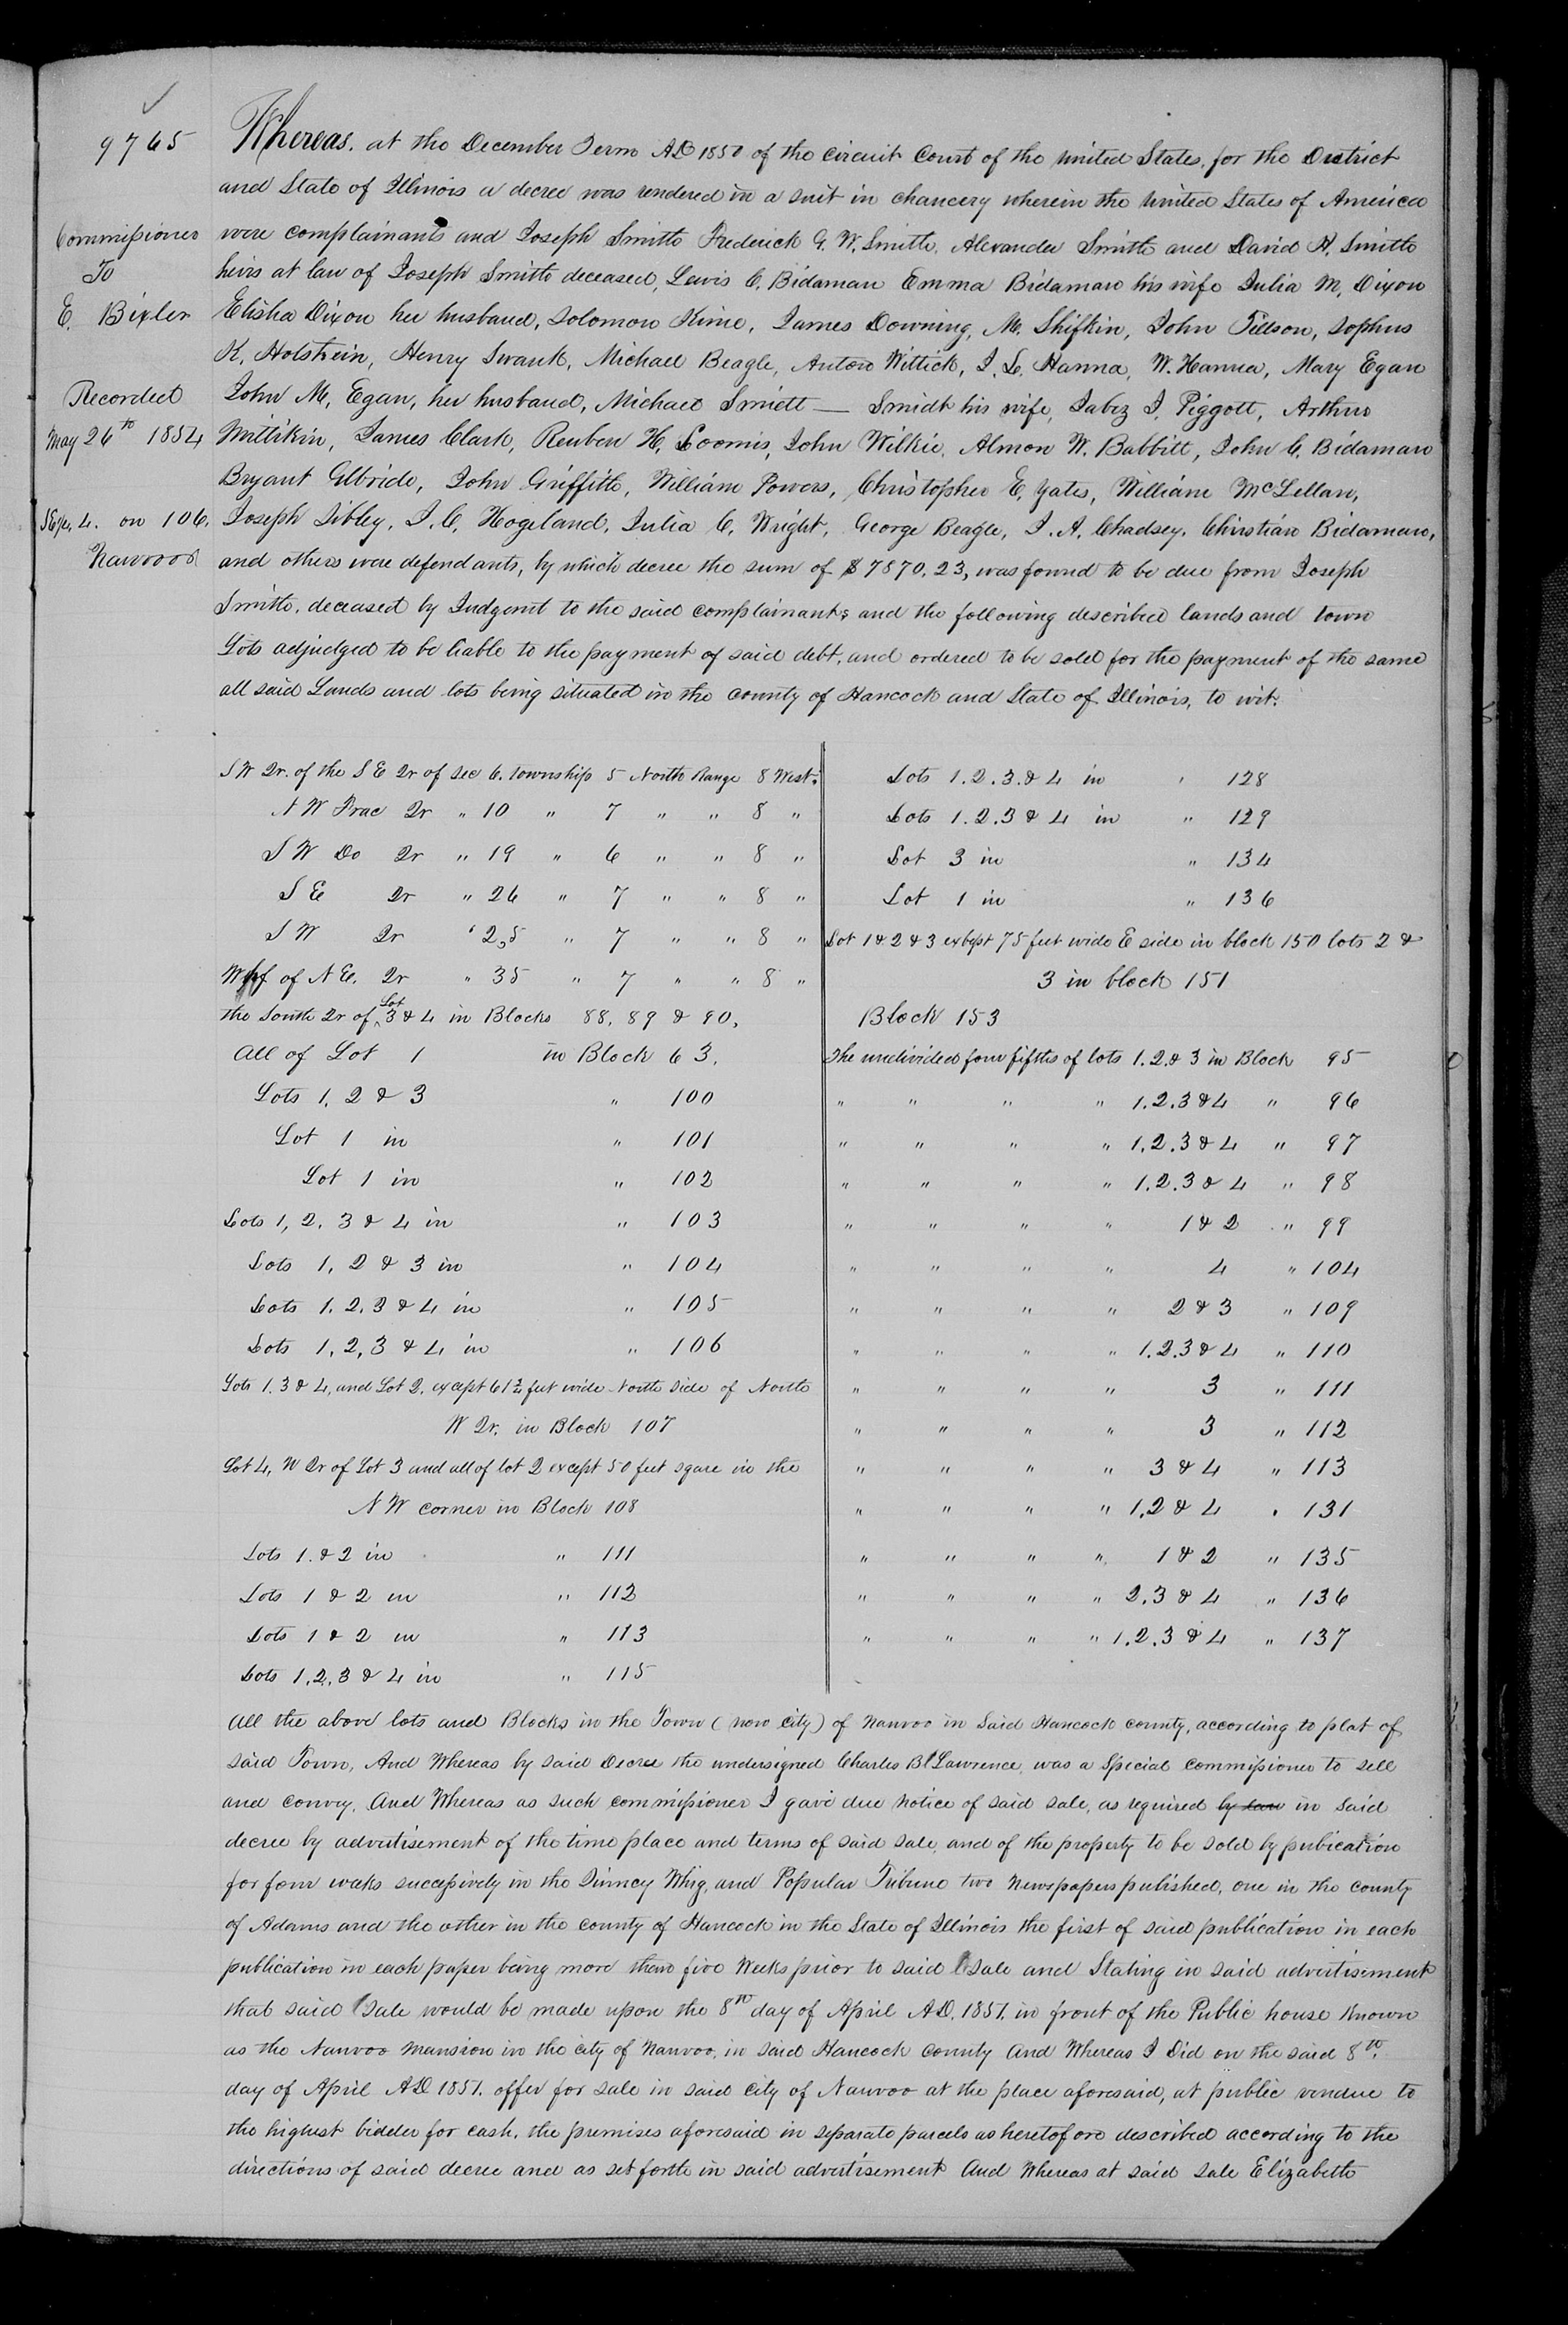 9765
Commissioner
To
E. Bixler
Recorded
May 26th 1854
4. on 106.
Nauvoo
Whereas. at the December Term AD 1850 of the Circuit Court of the United States, for the District
and State of Illinois a decree was rendered in a suit in chancery wherein the United States of America
were complainants and Joseph Smith Frederick G. W. Smith, Alexander Smith and David H. Smith
heirs at law of Joseph Smith deceased, Lewis C. Bidaman Emma Bidaman his wife Julia M. Dixon
Elisha Dixon her husband, Solomon Kime, James Downing, M. Shifkin, John Tillson, Sophus
K. Holstein, Henry Swank, Michael Beagle, Anton Wittick, J. L. Hanna, W. Hanna, Mary Egan
John M. Egan, her husband, Michael Smidt — Smidt his wife, Jabez J. Piggott, Arthur
Millikin, James Clark, Reuben H. Loomis, John Wilkie, Almon W. Babbitt, John C. Bidaman
Bryant Gilbride, John Griffith, William Powers, Christopher E. Yates, William McLellan,
Joseph Sibley, J. C. Hogeland, Julia C. Wright, George Beagle, J. A. Chadsey, Christian Bidaman,
and others were defendants, by which decree the sum of $7870.23, was found to be due from Joseph
Smith, deceased by Judgemt to the said complainants and the following described lands and town
Lots adjudged to be liable to the payment of said debt, and ordered to be sold for the payment of the same
all said Lands and lots being situated in the county of Hancock and State of Illinois, to wit:
S W Qr. of the S E Qr of Sec 6. Township 5 North Range 8 West.
N W Frac Qr " 10 " 7 " " 8 "
S W Do Qr " 19 " 6 " " 8 "
S E Qr " 26 " 7 " " 8 "
S W Qr " 25 " 7 " " 8 "
W hf of N E. Qr " 35 " 7 " " 8 "
the South Qr of Lot 3 & 4 in Blocks 88, 89 & 90,
All of Lot 1 in Block 63.
Lots 1, 2 & 3 " 100
Lot 1 in " 101
Lot 1 in " 102
Lots 1, 2, 3 & 4 in " 103
Lots 1, 2 & 3 in " 104
Lots 1, 2, 3 & 4 in " 105
Lots 1, 2, 3 & 4 in " 106
Lots 1. 3 & 4, and Lot 2, except 61 feet wide North side of North
W Qr. in Block 107
Lot 4, W Qr of Lot 3 and all of lot 2 except 50 feet sqare in the
N W corner in Block 108
Lots 1. & 2 in " 111
Lots 1 & 2 in " 112
Lots 1 & 2 in " 113
Lots 1, 2, 3 & 4 in " 115
Lots 1. 2. 3. & 4 in " 128
Lots 1. 2. 3 & 4 in " 129
Lot 3 in " 134
Lot 1 in " 136
Lot 1 & 2 & 3 except 75 feet wide E side in block 150 lots 2 &
3 in block 151
Block 153
The undivided four fifths of lots 1. 2. & 3 in Block 95
" " " " 1. 2. 3 & 4 " 96
" " " " 1. 2. 3 & 4 " 97
" " " " 1. 2. 3 & 4 " 98
" " " " 1 & 2 " 99
" " " " 4 " 104
" " " " 2 & 3 " 109
" " " " 1. 2. 3 & 4 " 110
" " " " 3 " 111
" " " " 3 " 112
" " " " 3 & 4 " 113
" " " " 1, 2 & 4 " 131
" " " " 1 & 2 " 135
" " " " 2. 3 & 4 " 136
" " " " 1. 2. 3 & 4 " 137
All the above lots and Blocks in the Town (now City) of Nauvoo in Said Hancock county, according to plat of
said Town, And Whereas by said Decree the undersigned Charles B Lawrence, was a Special commissioner to sell
and convey, And Whereas as such commissioner I gave due notice of said sale, as required by law in said
decree by advertisement of the time place and terms of said sale, and of the property to be sold by pubication
for four weeks successively in the Quincy Whig, and Popular Tribune two Newspapers pulished, one in the county
of Adams and the other in the county of Hancock in the State of Illinois the first of said publication in each
publication in each paper being more than five Weeks prior to said sale and Stating in said advertisement
that said sale would be made upon the 8th day of April AD. 1851. in front of the Public house Known
as the Nauvoo Mansion in the city of Nauvoo, in said Hancock County And Whereas I Did on the said 8th.
day of April AD 1851. offer for sale in said City of Nauvoo at the place aforesaid, at public vendue to
the highest bidder for cash, the premises aforesaid in separate parcels as heretofore described according to the
directions of said decree and as set forth in said advertisement And Whereas at said sale Elizabeth